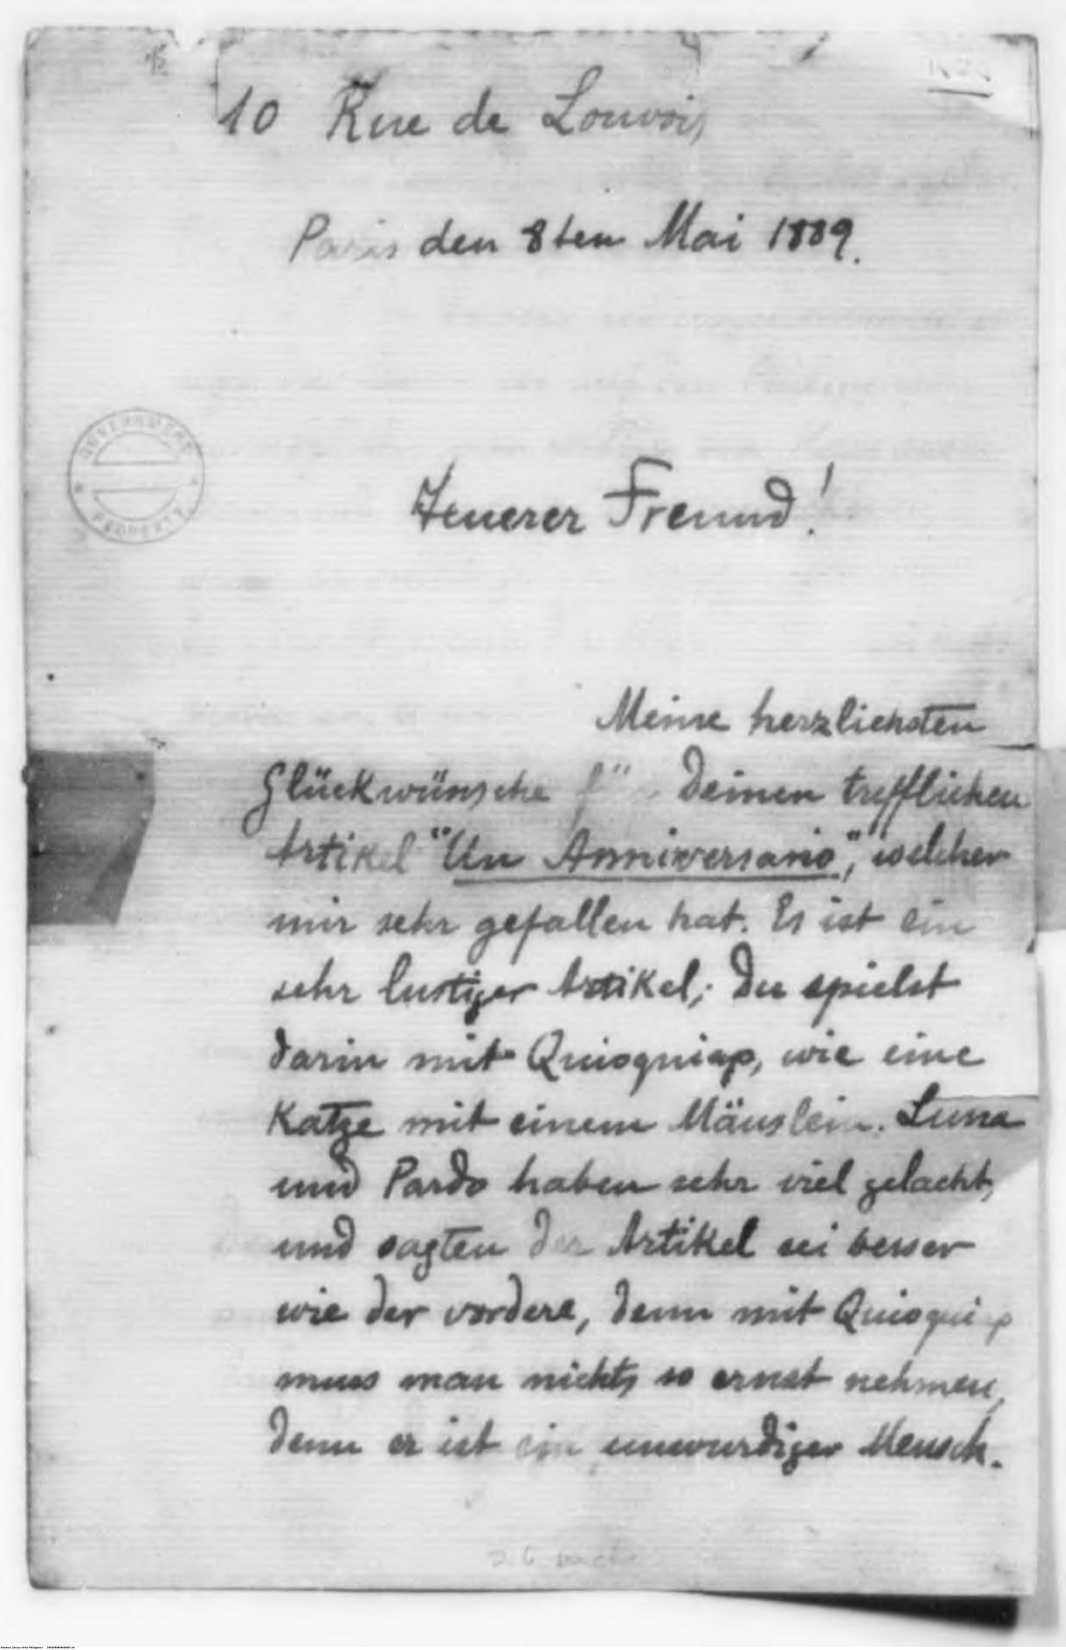 10 Rue de Louvois
Paris den 8ten Mai 1889.
GOVERNMENT
PROPERTY
Teuerer Freund!
Meine herzlichsten
Glückwünsche für Deinen trefflichen
Artikel "Un Anniversario", welcher
mir sehr gefallen hat. Es ist ein
sehr lustiger Artikel; Du spielst
darin mit Quioquiap, wie eine
Katze mit einem Mäuslein. Luna
und Pardo haben sehr viel gelacht,
und sagten der Artikel sei besser
wie der vordere, denn mit Quioquiap
muss man nichts so ernst nehmen,
denn er ist ein unwurdiger Mensch.